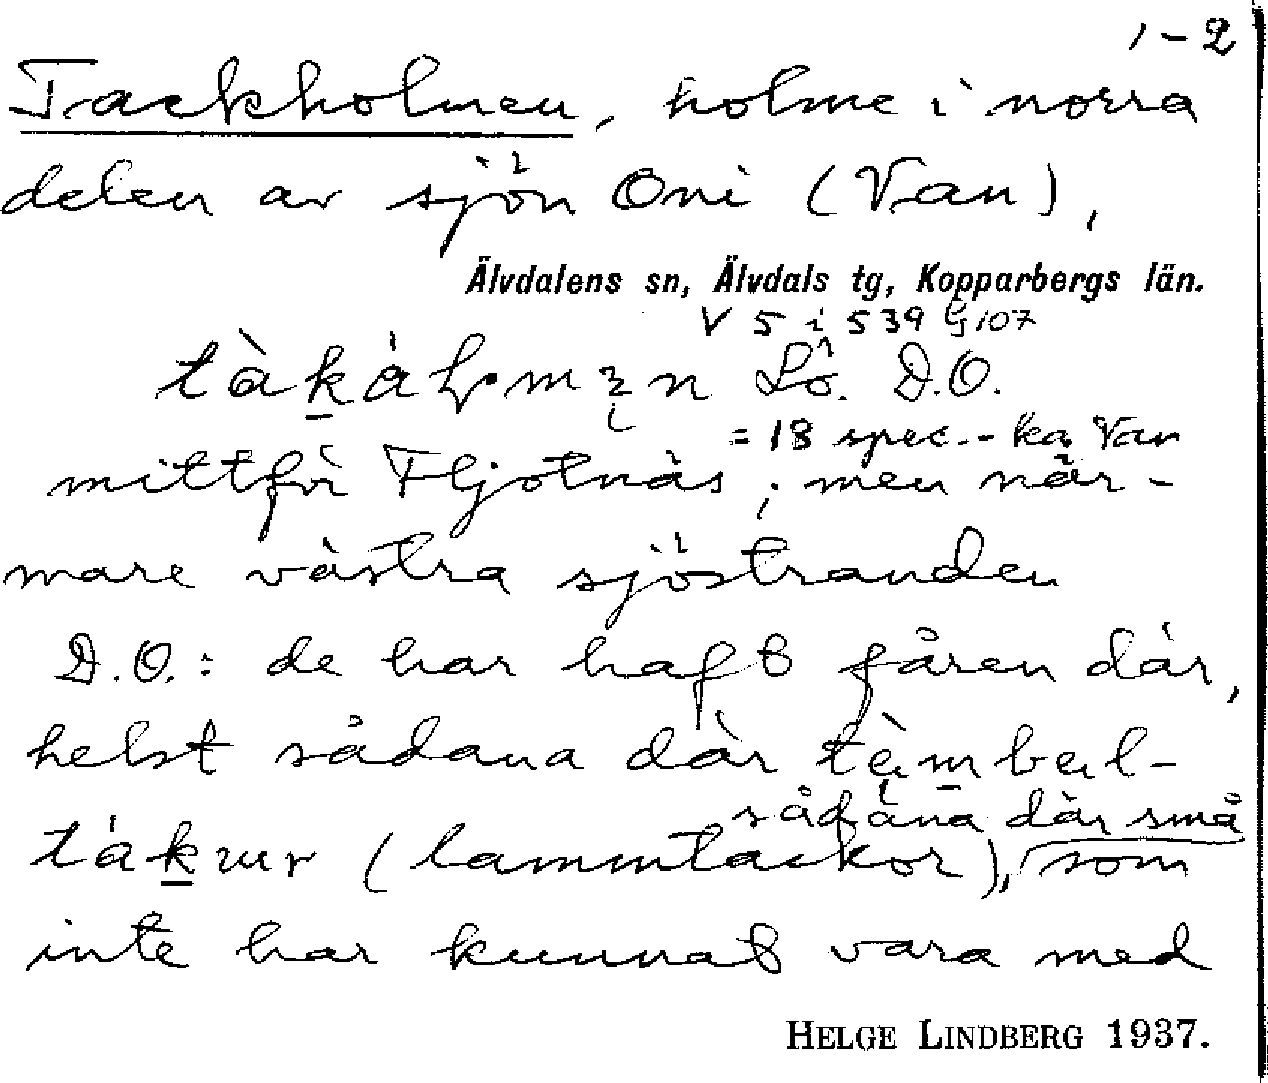 1-2
Tackholmen, holme i norra
delen av sjön Oni (Van),
Älvdalens sn, Älvdals tg, Kopparbergs län.
V 5 i 539 G 107
D.O.
= 18 spec. - ka Van
mittför Fljotnäs; men när-
mare västra sjöstranden
D.O.: de har haft fåren där,
helst sådana där
sådana där små
(lammtackor), som
inte har kunnat vara med
HELGE LINDBERG 1937.